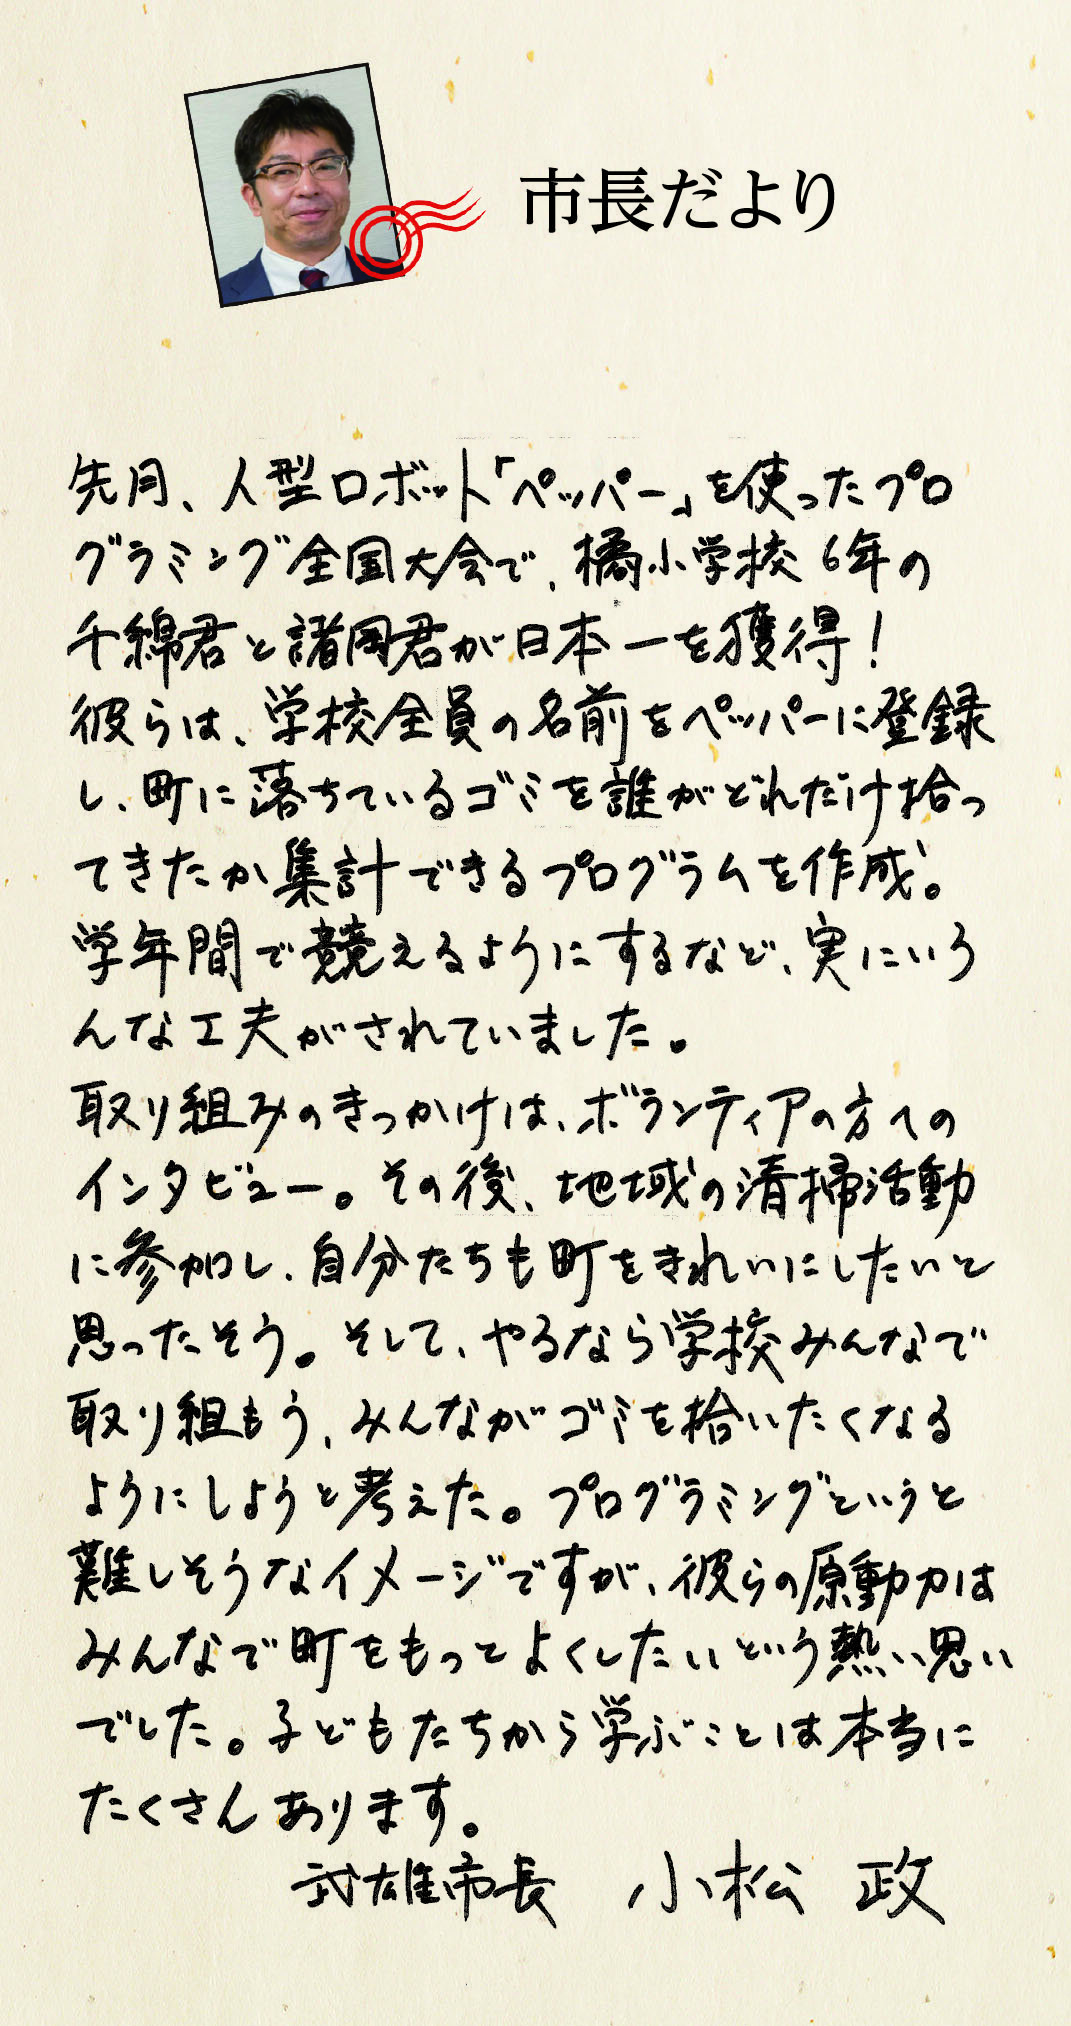 市長だより
先月、人型ロボット「ペッパー」を使ったプロ
グラミング全国大会で、橘小学校6年の
千綿君と諸岡君が日本一を獲得！
彼らは、学校全員の名前をペッパーに登録
し、町に落ちているゴミを誰がどれだけ拾っ
てきたか集計できるプログラムを作成。
学年間で競えるようにするなど、実にいろ
んな工夫がされていました。
取り組みのきっかけは、ボランティアの方への
インタビュー。その後、地域の清掃活動
に参加し、自分たちも町をきれいにしたいと
思ったそう。そして、やるなら学校みんなで
取り組もう、みんながゴミを拾いたくなる
ようにしようと考えた。プログラミングというと
難しそうなイメージですが、彼らの原動力は
みんなで町をもっとよくしたいという熱い思い
でした。子どもたちから学ぶことは本当に
たくさんあります。
武雄市長 小松 政